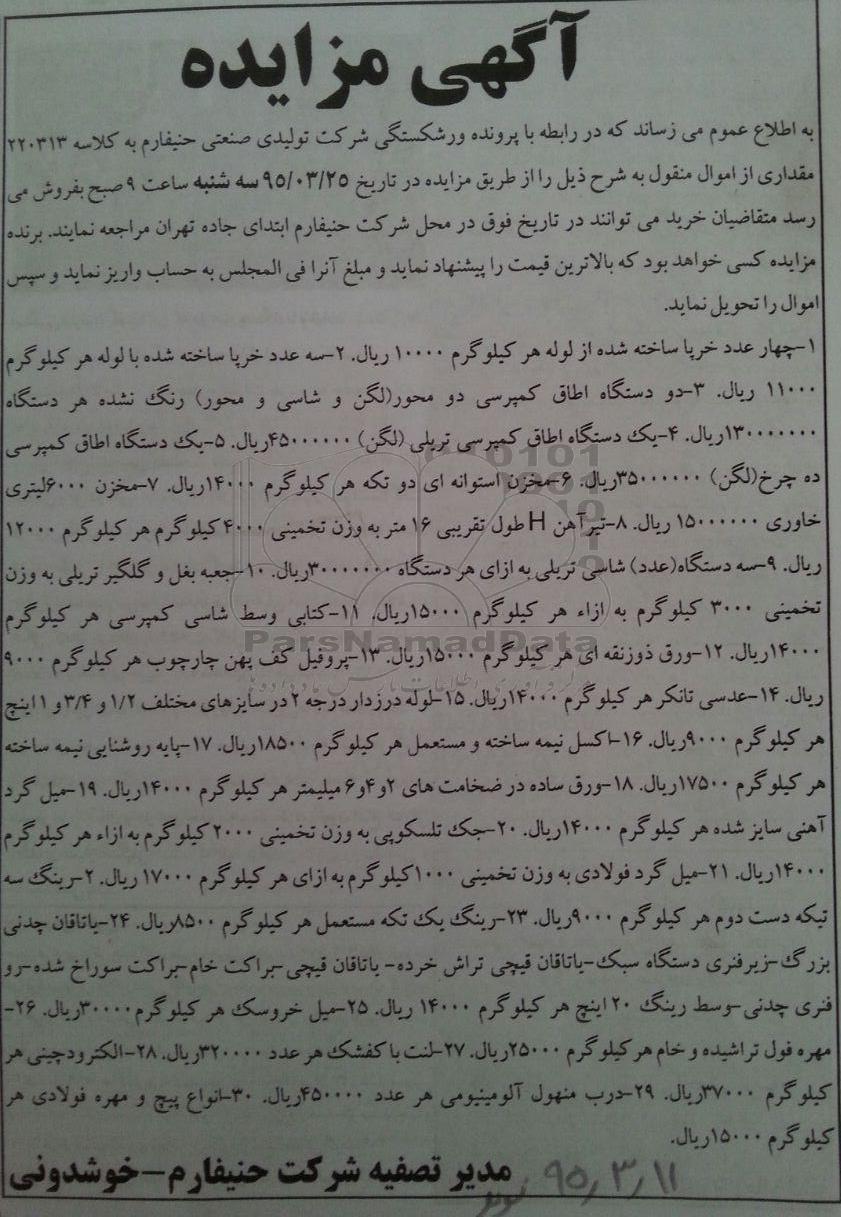 آگهی مزایده
به اطلاع عموم می زساند که در رابطه با پرونده ورشکستگی شرکت تولیدی صنعتی حنیفارم به کلاسه ۲۲۰۳۱۳
مقداری از اموال منقول به شرح ذیل را از طریق مزایده در تاریخ ۹۵/۰۳/۲۵ سه شنبه ساعت ۹ صبح بفروش می
رسد متقاضیان خرید می توانند در تاریخ فوق در محل شرکت حنیفارم ابتدای جاده تهران مراجعه نمایند. برنده
مزایده کسی خواهد بود که بالاترین قیمت را پیشنهاد نماید و مبلغ آنرا فی المجلس به حساب واریز نماید و سپس
اموال را تحویل نماید.
۱-چهار عدد خرپا ساخته شده از لوله هر کیلوگرم ۱۰۰۰۰ ریال. ۲-سه عدد خرپا ساخته شده با لوله هر کیلوگرم
۱۱۰۰۰ ریال. ۳-دو دستگاه اطاق کمپرسی دو محور(لگن و شاسی و محور) رنگ نشده هر دستگاه
۱۳۰۰۰۰۰۰۰ریال. ۴-یک دستگاه اطاق کمپرسی تریلی (لگن) ۴۵۰۰۰۰۰۰ریال. ۵-یک دستگاه اطاق کمپرسی
ده چرخ(لگن) ۳۵۰۰۰۰۰۰ریال. ۶-مخزن استوانه ای دو تکه هر کیلوگرم ۱۴۰۰۰ریال. ۷-مخزن ۶۰۰۰لیتری
خاوری ۱۵۰۰۰۰۰۰ ریال. ۸-تیرآهن H طول تقریبی ۱۶ متر به وزن تخمینی ۴۰۰۰ کیلوگرم هر کیلوگرم ۱۲۰۰۰
ریال. ۹-سه دستگاه(عدد) شاسی تریلی به ازای هر دستگاه ۳۰۰۰۰۰۰۰ریال. ۱۰-جعبه بغل و گلگیر تریلی به وزن
تخمینی ۳۰۰۰ کیلوگرم به ازاء هر کیلوگرم ۱۵۰۰۰ریال. ۱۱-کتابی وسط شاسی کمپرسی هر کیلوگرم
۱۴۰۰۰ریال. ۱۲-ورق ذوزنقه ای هر کیلوگرم ۱۵۰۰۰ریال. ۱۳-پروفیل کف پهن چارچوب هر کیلوگرم ۹۰۰۰
ریال. ۱۴-عدسی تانکر هر کیلوگرم ۱۴۰۰۰ریال. ۱۵-لوله درزدار درجه ۲ در سایزهای مختلف ۱/۲ و ۳/۴ و ۱ اینچ
هر کیلوگرم ۹۰۰۰ریال. ۱۶-اکسل نیمه ساخته و مستعمل هر کیلوگرم ۱۸۵۰۰ریال. ۱۷-پایه روشنایی نیمه ساخته
هر کیلوگرم ۱۷۵۰۰ریال. ۱۸-ورق ساده در ضخامت های ۲و۴و۶ میلیمتر هر کیلوگرم ۱۴۰۰۰ریال. ۱۹-میل گرد
آهنی سایز شده هر کیلوگرم ۱۴۰۰۰ریال. ۲۰-جک تلسکوپی به وزن تخمینی ۲۰۰۰ کیلوگرم به ازاء هر کیلوگرم
۱۴۰۰۰ریال. ۲۱-میل گرد فولادی به وزن تخمینی ۱۰۰۰کیلوگرم به ازای هر کیلوگرم ۱۷۰۰۰ ریال. ۲-رینگ سه
تیکه دست دوم هر کیلوگرم ۹۰۰۰ریال. ۲۳-رینگ یک تکه مستعمل هر کیلوگرم ۸۵۰۰ریال. ۲۴-یاتاقان چدنی
بزرگ-زیرفنری دستگاه سبک-یاتاقان قیچی تراش خرده- یاتاقان قیچی-براکت خام-براکت سوراخ شده-رو
فنری چدنی-وسط رینگ ۲۰ اینچ هر کیلوگرم ۱۴۰۰۰ ریال. ۲۵-میل خروسک هر کیلوگرم۳۰۰۰۰ریال. ۲۶-
مهره فول تراشیده و خام هرکیلوگرم ۲۵۰۰۰ریال. ۲۷-لنت با کفشک هر عدد ۳۲۰۰۰۰ریال. ۲۸-الکترودچینی هر
کیلوگرم ۳۷۰۰۰ریال. ۲۹-درب منهول آلومینیومی هر عدد ۴۵۰۰۰۰ریال. ۳۰-انواع پیچ و مهره فولادی هر
کیلوگرم ۱۵۰۰۰ریال.
مدیر تصفیه شرکت حنیفارم-خوشدونی
۹۵/۳/۱۱
ParsNamadData